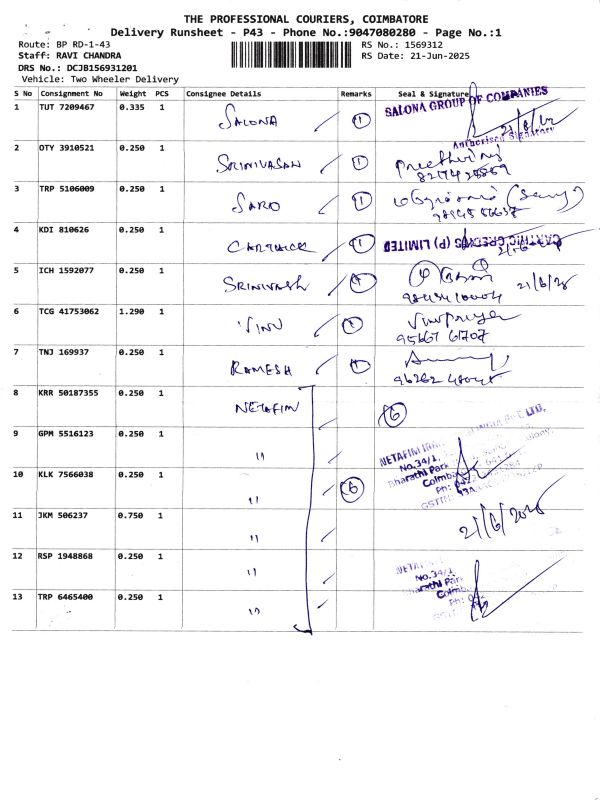 THE PROFESSIONAL COURIERS, COIMBATORE
Delivery Runsheet - P43 - Phone No.:9047080280 - Page No.:1
Route: BP RD-1-43 RS No.: 1569312
Staff: RAVI CHANDRA RS Date: 21-Jun-2025
DRS No.: DCJB156931201
Vehicle: Two Wheeler Delivery
S No Consignment No Weight PCS Consignee Details Remarks Seal & Signature
1 TUT 7209467 0.335 1 SALONA 1 SALONA GROUP OF COMPANIES
Authorised Signatory
2 OTY 3910521 0.250 1 SRINIVASAN 1
3 TRP 5106009 0.250 1 SARO 1
4 KDI 810626 0.250 1 1 (P) LIMITED
5 ICH 1592077 0.250 1 21/6/25
6 TCG 41753062 1.290 1 VINU 1 Vinupriya
95667 61707
7 TNJ 169937 0.250 1 RAMESH 1
8 KRR 50187355 0.250 1 NETAFIM 6
9 GPM 5516123 0.250 1 "
NETAFIM
No.34/1,
Bharathi Park
10 KLK 7566038 0.250 1 " 6
11 JKM 506237 0.750 1 " 21/6/2025
12 RSP 1948868 0.250 1 "
No.34/1
Bharathi Park
13 TRP 6465400 0.250 1 "